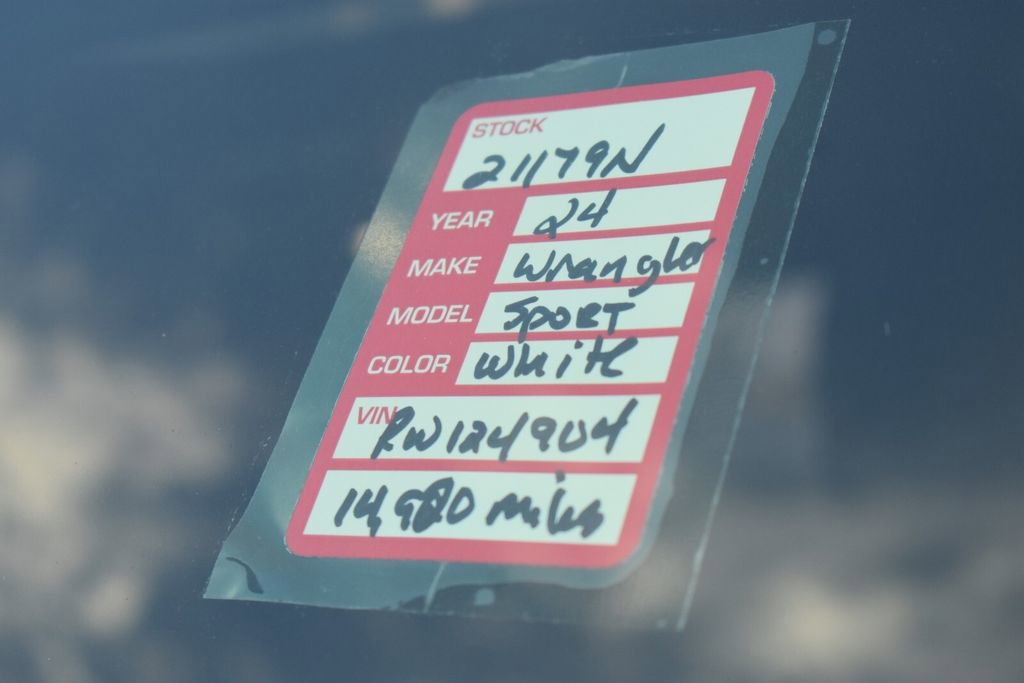 STOCK
21179N
YEAR 24
MAKE Wrangler
MODEL SPORT
COLOR White
VIN RW124904
14,980 miles